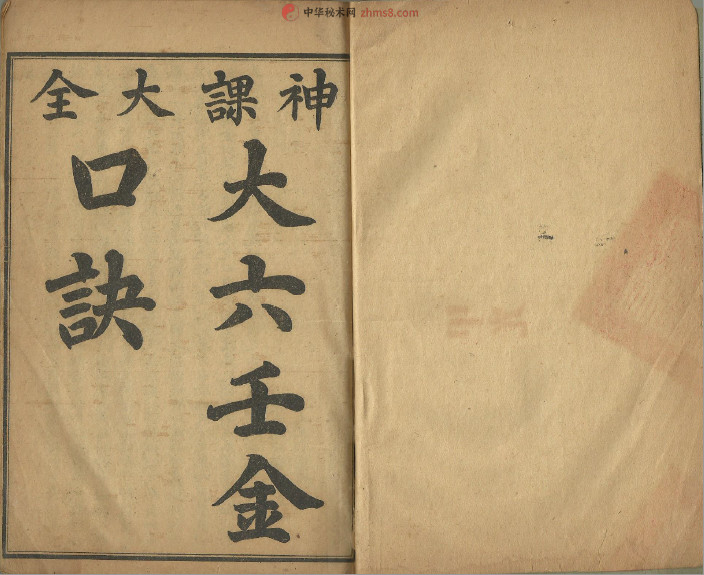 中华秘术网 zhms8.com
神課大全
大六壬金
口訣